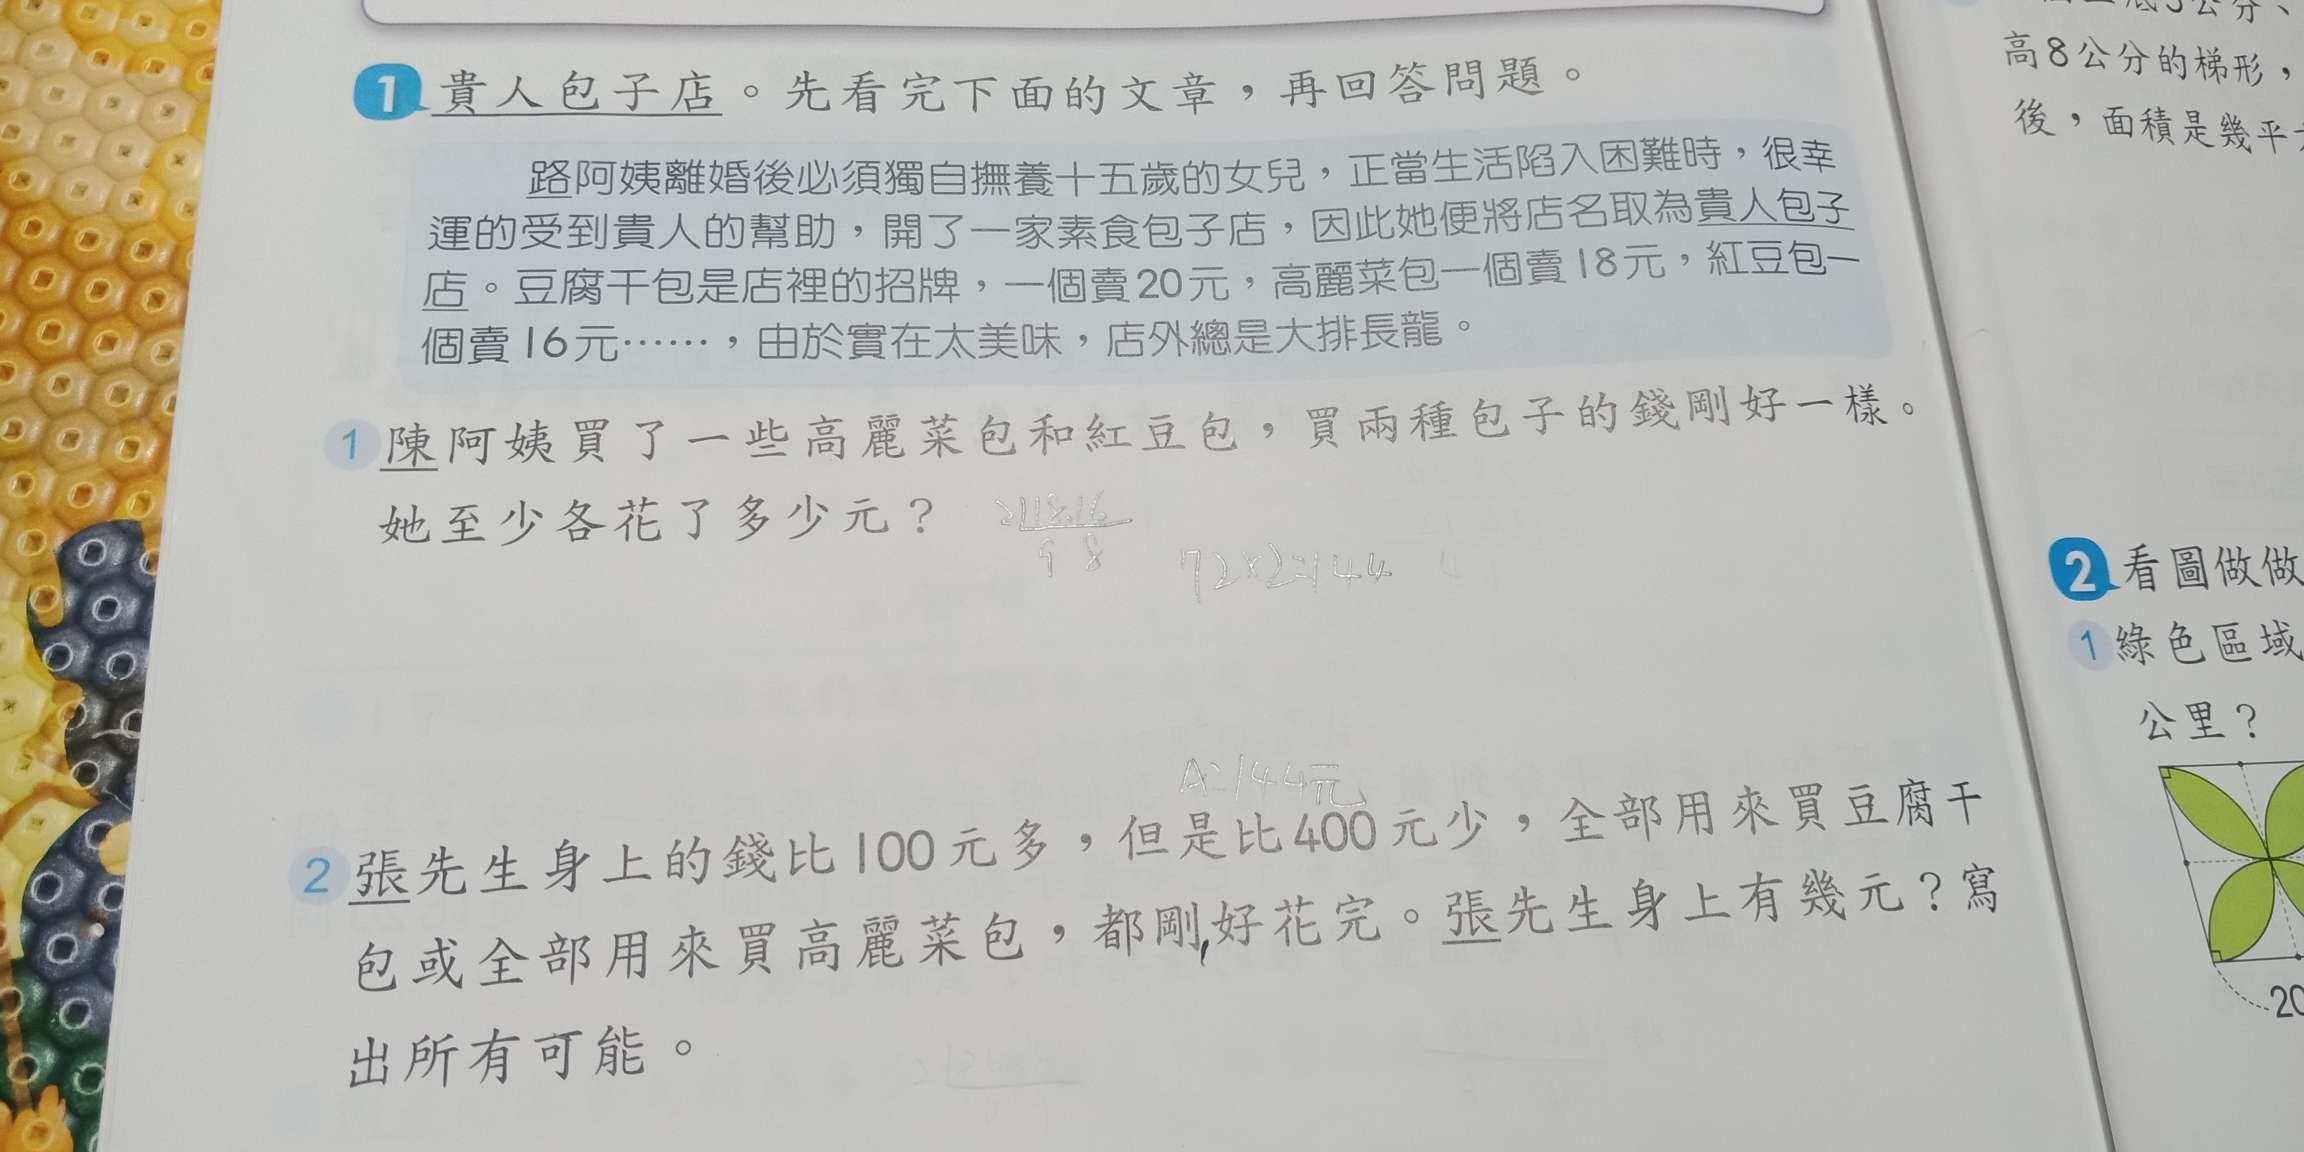 1 貴人包子店。先看完下面的文章，再回答問題。
路阿姨離婚後必須獨自撫養十五歲的女兒，正當生活陷入困難時，很幸
運的受到貴人的幫助，開了一家素食包子店，因此她便將店名取為貴人包子
店。豆腐干包是店裡的招牌，一個賣20元，高麗菜包一個賣18元，紅豆包一
個賣16元……，由於實在太美味，店外總是大排長龍。
1 陳阿姨買了一些高麗菜包和紅豆包，買兩種包子的錢剛好一樣。
她至少各花了多少元？
2 18.16
9 8
72×2=144
A:144元
2 張先生身上的錢比100元多，但是比400元少，全部用來買豆腐干
包或全部用來買高麗菜包，都剛好花完。張先生身上有幾元？寫
出所有可能。
高8公分的梯形，
後，面積是幾平
2 看圖做做
1 綠色區域
公里？
20